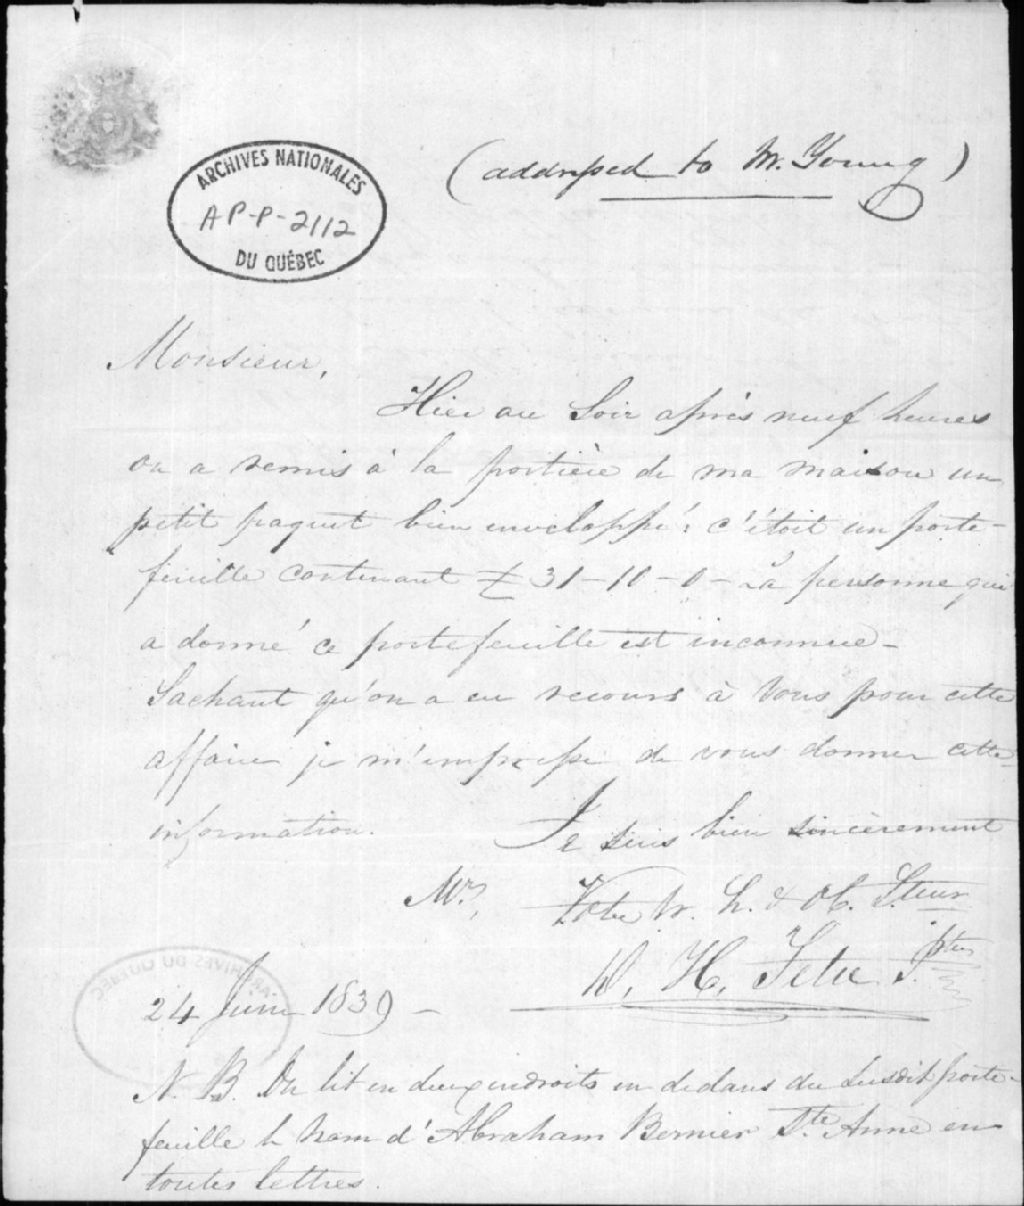 ARCHIVES NATIONALES
AP-P-2112
DU QUÉBEC
(addressed to Mr. Young)
Monsieur,
Hier au Soir après neuf heures
on a remis à la portière de ma maison un
petit paquet bien enveloppé: c'étoit un porte-
feuille contenant £ 31-10-0- La personne qui
a donné ce portefeuille est inconnue-
Sachant qu'on a eu recours à Vous pour cette
affaire je m'empresse de vous donner cette
information. Je suis bien sincèrement
Mr., Votre tr. h. & ob. Steur
D. H. Tetu Ptre
24 Juin 1839 -
N. B. On lit en deux endroits en dedans du susdit porte-
feuille le nom d'Abraham Bernier Ste. Anne en
toutes lettres.